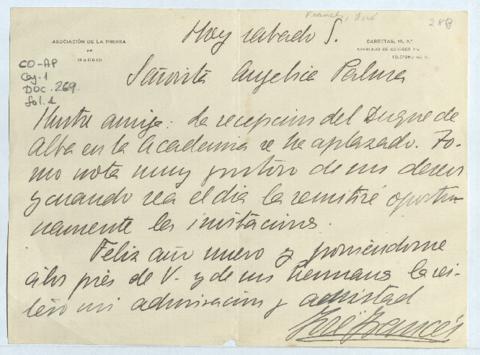 Francés, José
288
Hoy sabado 5.
ASOCIACIÓN DE LA PRENSA
DE
MADRID
CARRETAS, 10, 2.º
APARTADO DE CORREOS
TELÉFONO
CO-AP
Caj. 1
DOC. 269.
fol. 1
Señorita Angelica Palma
Ilustre amiga: La recepcion del Duque de
Alba en la Academia se ha aplazado. To-
mo nota muy gustoso de sus deseos
y cuando sea el dia la remitiré oportu-
namente las invitaciones.
Feliz año nuevo y poniendome
a los pies de V. y de su hermana la rei-
tero mi admiracion y amistad
José Francés